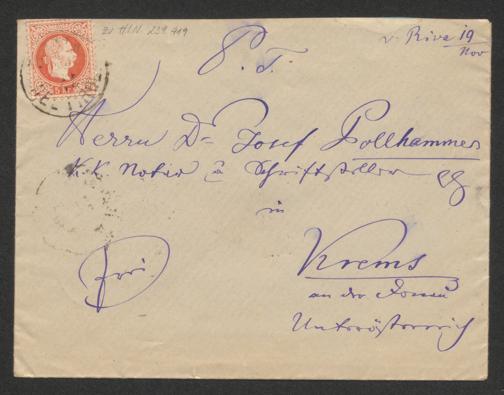 ZU H.I.N. 239 419
v. Riva 19
Nov
P. T.
Herrn Dr Josef Pollhammer
K.K. Notar u Schriftsteller
in
Krems
an der Donau
Unterösterreich
frei